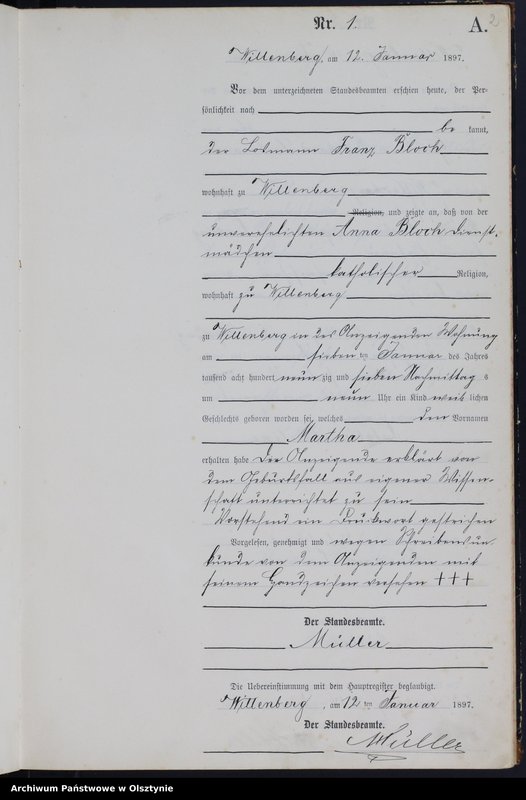 Nr. 1.
A. 2
Willenberg, am 12. Januar 1897.
Vor dem unterzeichneten Standesbeamten erschien heute, der Per-
sönlichkeit nach
be kannt,
der Losmann Franz Bloch
wohnhaft zu Willenberg
Religion, und zeigte an, daß von der
unverehelichten Anna Bloch Dienst-
mädchen
katholischer Religion,
wohnhaft zu Willenberg
zu Willenberg in des Anzeigenden Wohnung
am sieben ten Januar des Jahres
tausend acht hundert neun zig und sieben Nachmittag s
um neun Uhr ein Kind weib lichen
Geschlechts geboren worden sei, welches den Vornamen
Martha
erhalten habe Der Anzeigende erklärt von
dem Geburtsfall aus eigener Wissen-
schaft unterrichtet zu sein
Vorstehend ein Druckwort gestrichen
Vorgelesen, genehmigt und wegen Schreibensun-
kunde von dem Anzeigenden mit
seinem Handzeichen versehen +++
Der Standesbeamte.
Müller
Die Uebereinstimmung mit dem Hauptregister beglaubigt.
Willenberg, am 12 ten Januar 1897.
Der Standesbeamte.
Müller
Archiwum Państwowe w Olsztynie